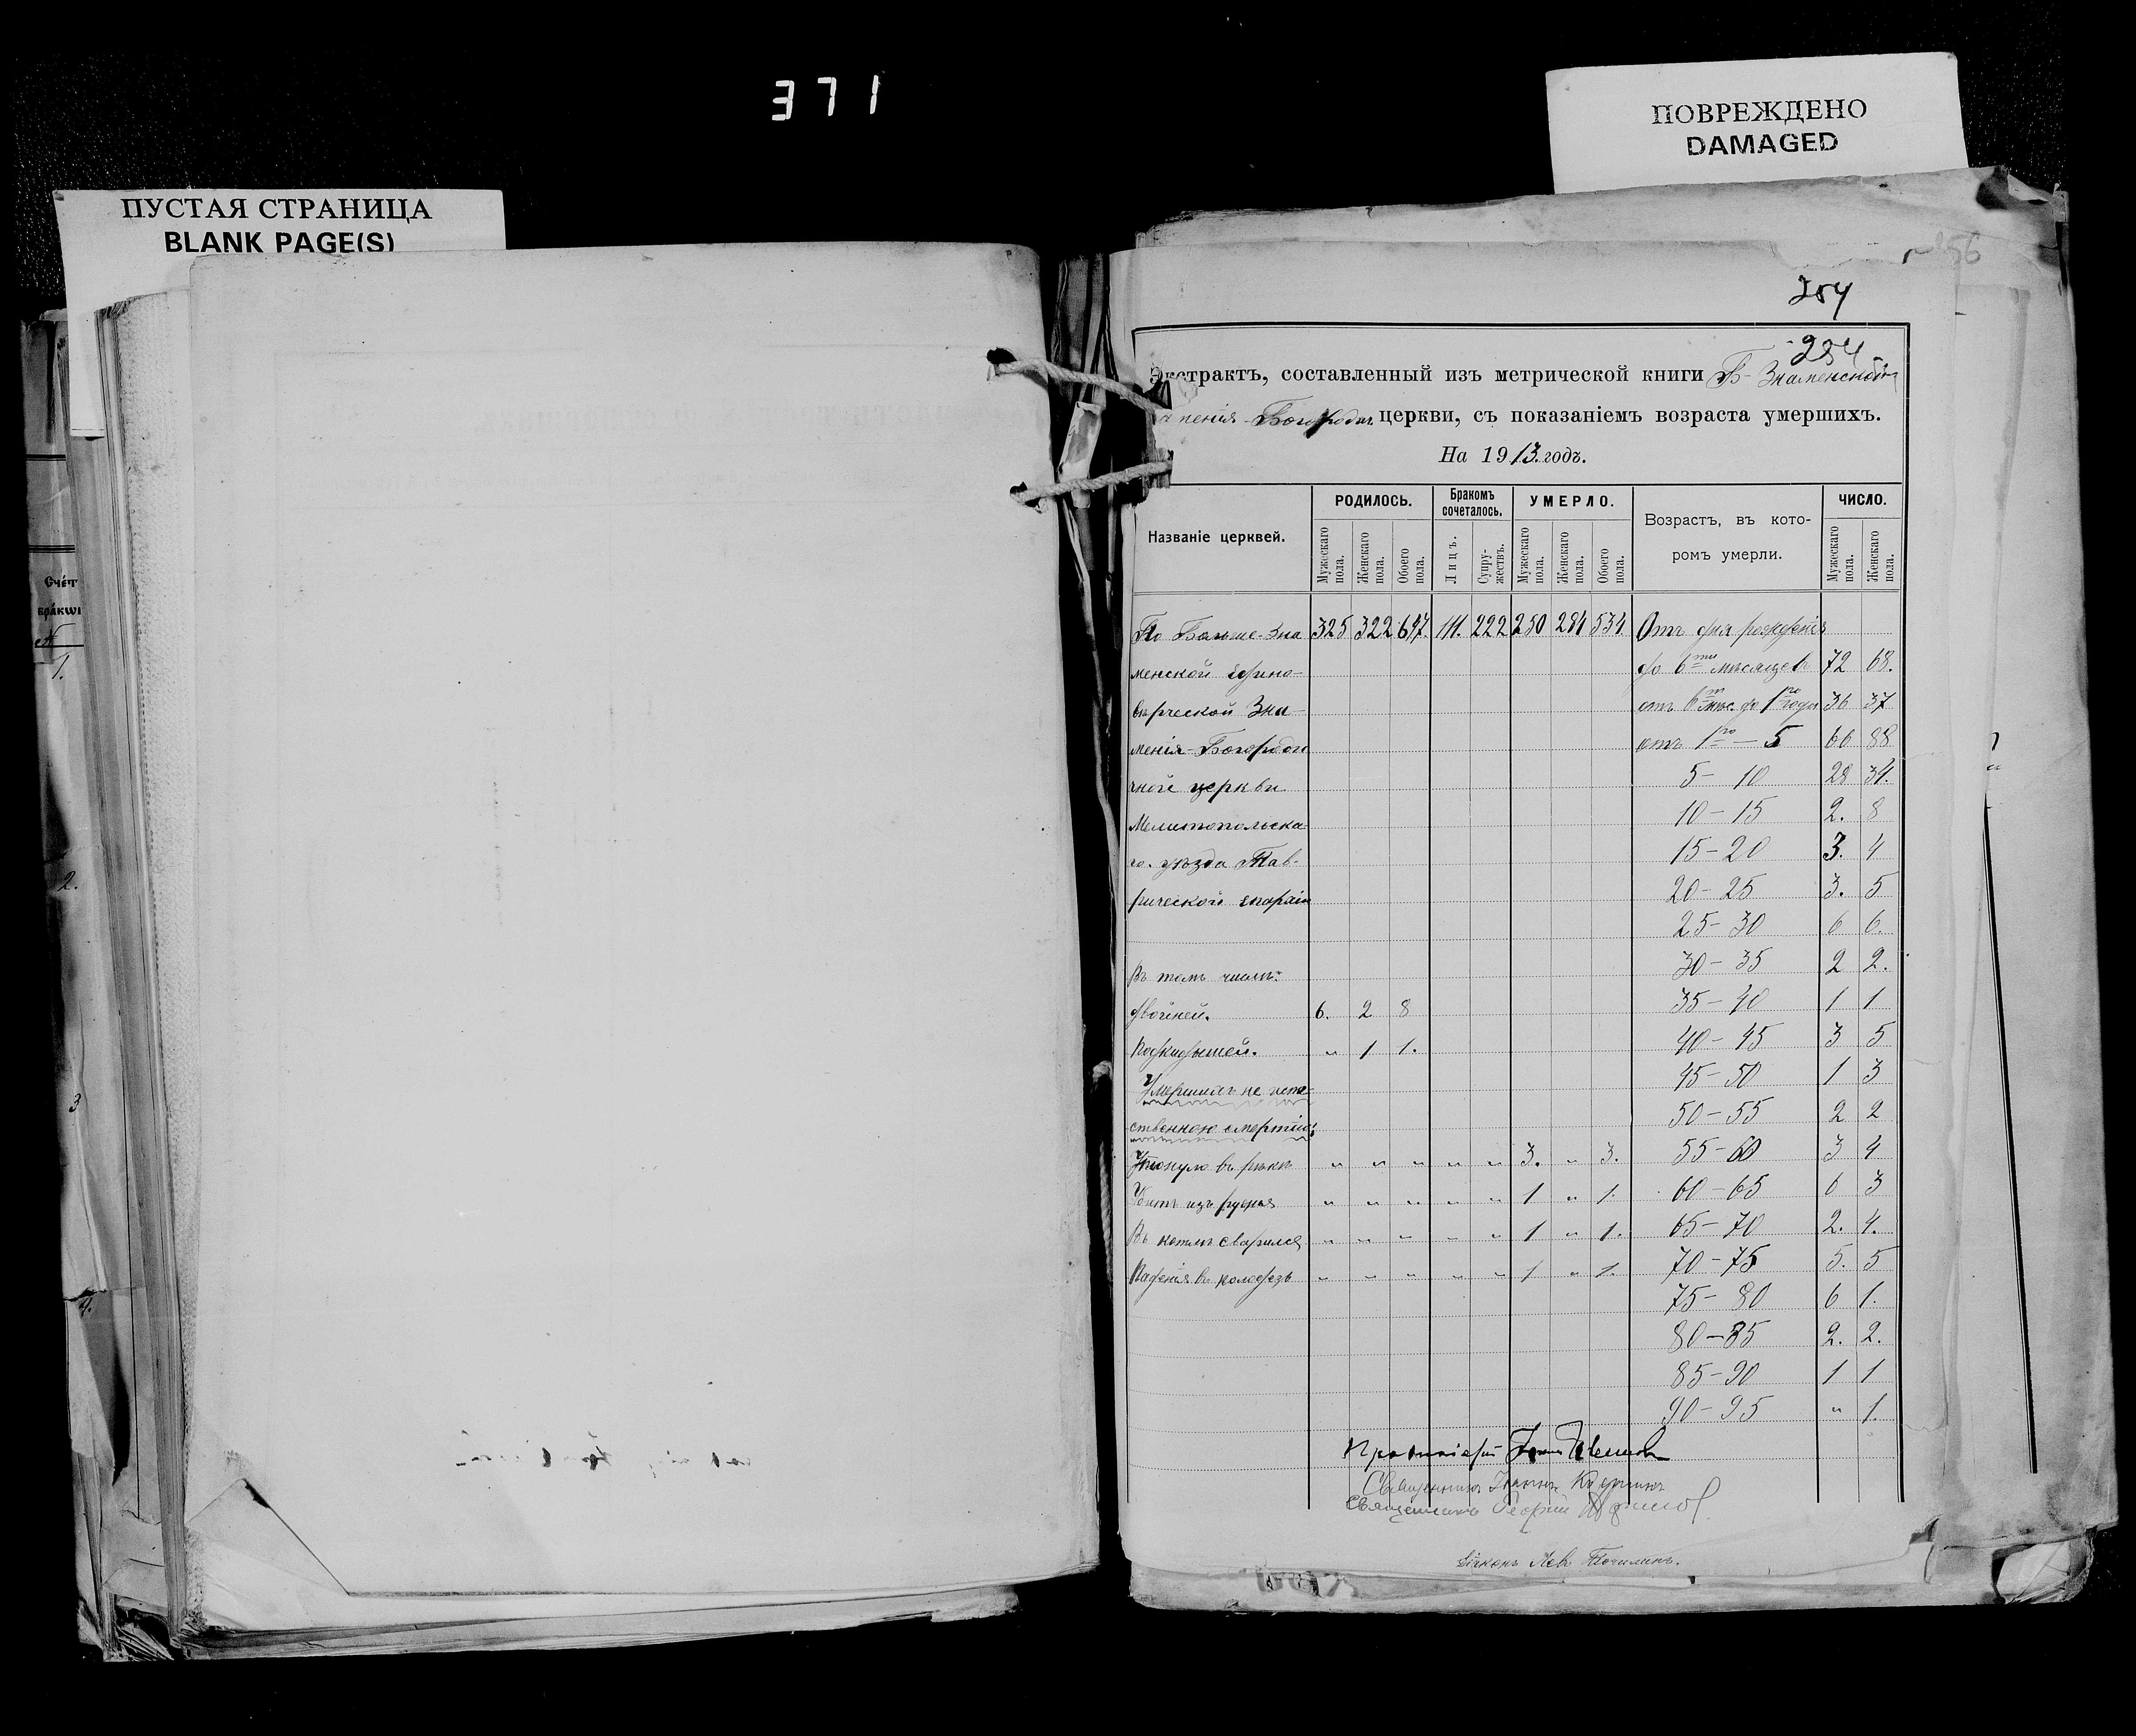 371
ПОВРЕЖДЕНО
DAMAGED
ПУСТАЯ СТРАНИЦА
BLANK PAGE(S)
Счéт
брáкωв
1.
2.
3
4.
256
254
254
Экстрактъ, составленный изъ метрической книги Б-Знаменской
менія-Богородич церкви, съ показаніемъ возраста умершихъ.
На 1913 годъ.
Названіе церквей. РОДИЛОСЬ. Бракомъ сочеталось. УМЕРЛО. Возрастъ, въ кото-ромъ умерли. ЧИСЛО.
Мужескаго пола. Женскаго пола. Обоего пола. Лицъ. Супружествъ. Мужескаго пола. Женскаго пола. Обоего пола. Мужескаго пола. Женскаго пола.
По Больше-Зна 325 322 647. 111. 222 250 284 534. Отъ дня рожденія
менской едино- до 6ти мѣсяцевъ 72 68.
вѣрческой Зна- отъ 6ти мѣс. до 1го года 36 37
менія-Богороди отъ 1го — 5 66 88
чной церкви 5 - 10 28 34.
Мелитопольска- 10 - 15 2. 8
го уѣзда Тав- 15 - 20 3. 4
рической епархіи 20 - 25 3. 5
25 - 30 6 6.
Въ томъ числѣ: 30 - 35 2 2.
двойней. 6. 2 8 35 - 40 1 1
Подкидышей. " 1 1. 40 - 45 3 5
Умершихъ не есте- 45 - 50 1 3
ственною смертію: 50 - 55 2 2
Утонуло въ рѣкѣ " " " " " 3. " 3. 55 - 60 3 4
Убитъ изъ ружья " " " " " 1 " 1. 60 - 65 6 3
Въ котлѣ сварился " " " " " 1 " 1. 65 - 70 2. 4.
Паденія въ колодезь " " " " " 1 " 1. 70 - 75 5. 5
75 - 80 6 1.
80 - 85 2. 2.
85 - 90 1 1
90 - 95 " 1.
Протоіерей
Священникъ Іоаннъ
Священникъ Георгій
Діаконъ Левъ Точилинъ.